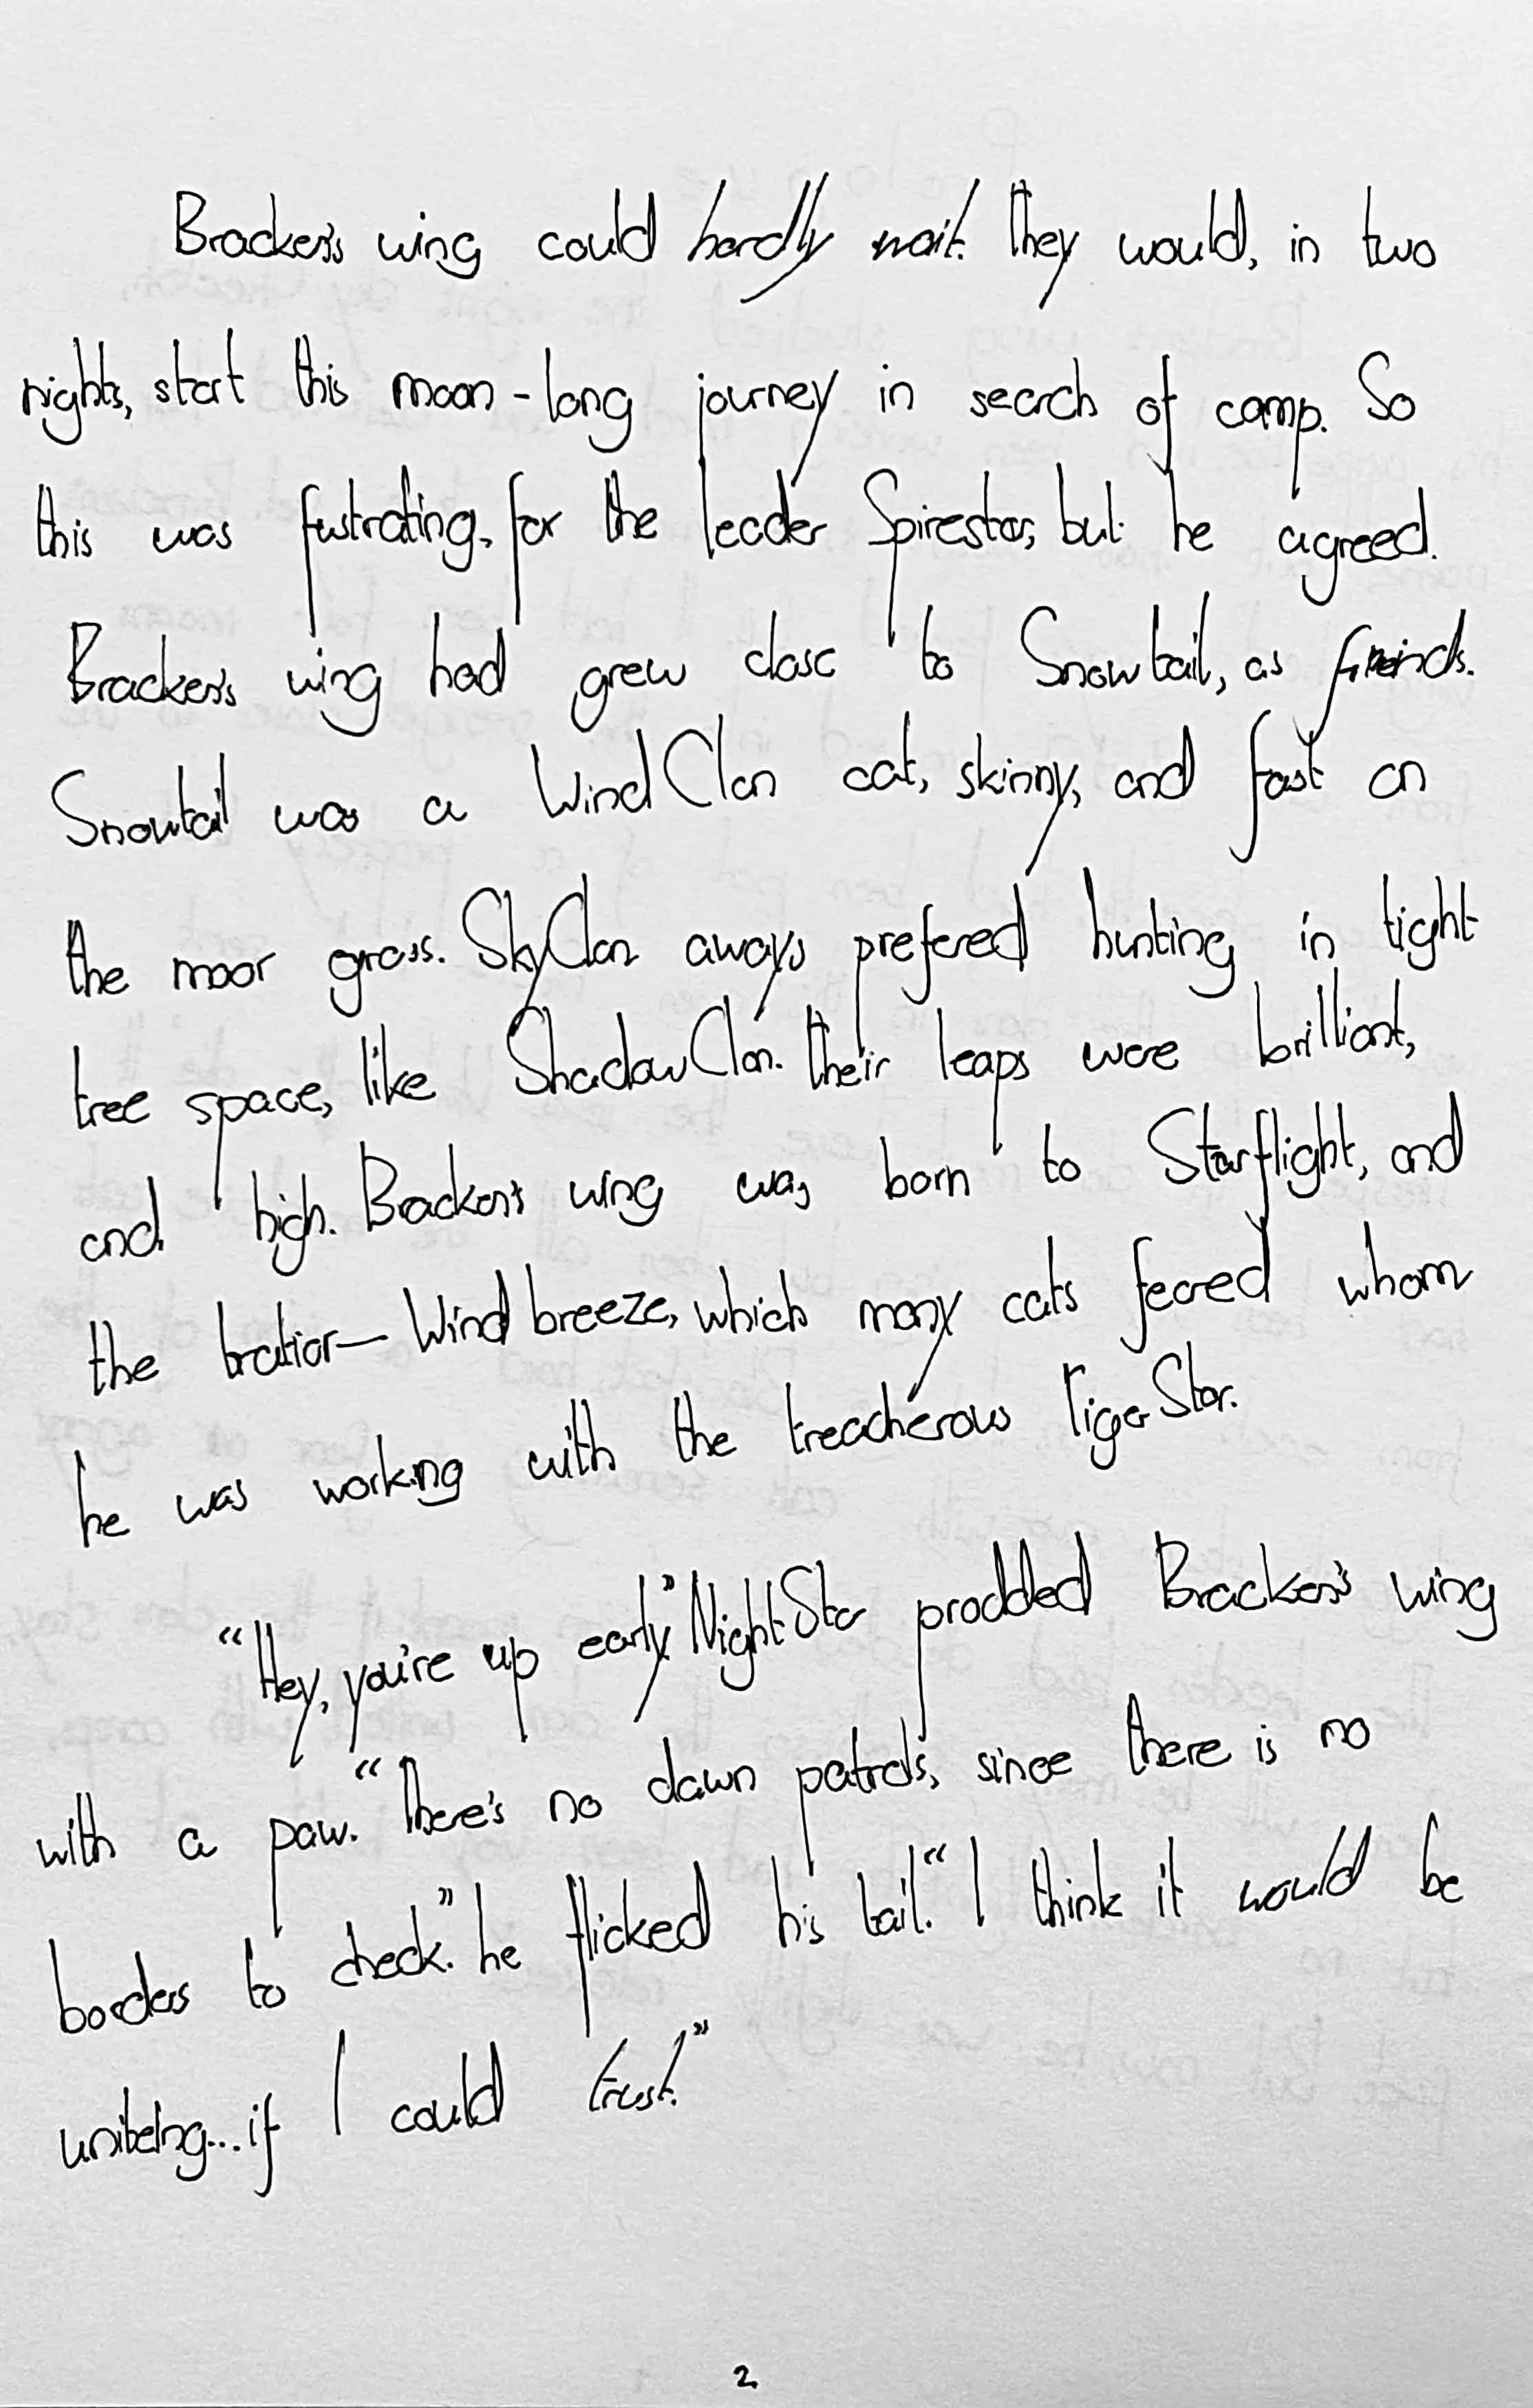 Bracken's wing could hardly wait. They would, in two
nights, start this moon-long journey in search of camp. So
this was fustrating, for the leader Spirestar, but he agreed.
Bracken's wing had grew close to Snowtail, as freinds.
Snowtail was a WindClan cat, skinny, and fast on
the moor grass. SkyClan aways prefered hunting in tight
tree space, like ShadowClan. Their leaps were brilliant,
and high. Bracken's wing was born to Starflight, and
the — Windbreeze, which many cats feared whom
he was working with the treacherous TigerStar.
"Hey, you're up early." NightStar prodded Bracken's wing
with a paw. "There's no dawn patrols, since there is no
borders to check." he flicked his tail. "I think it would be
... if I could trust."
2